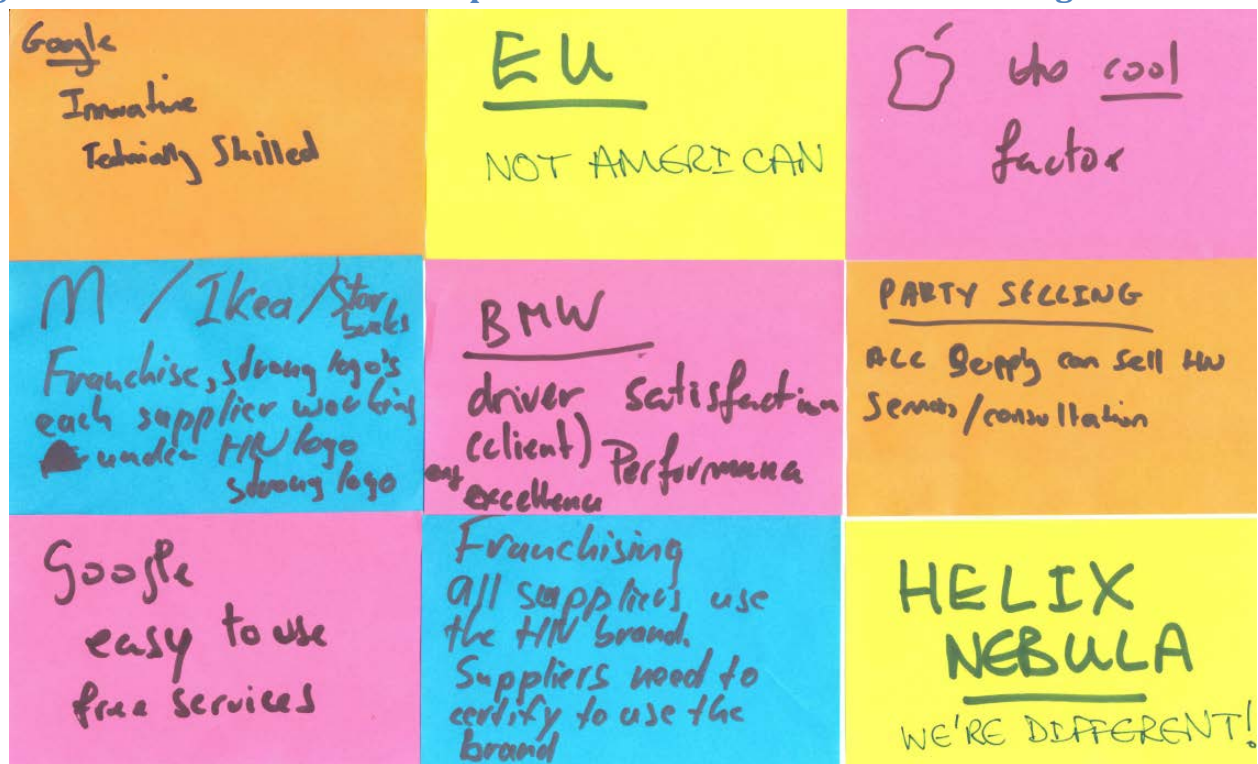 Google
Innovative
Technically Skilled
EU
NOT AMERICAN
the cool
factor
M / Ikea / Star
bucks
Franchise, strong logo's
each supplier working
under HN logo
strong logo
BMW
driver satisfaction
(client) Performance
excellence
PARTY SELLING
ALL Supply can sell HN
/consultation
Google
easy to use
free services
Franchising
all suppliers use
the HN brand.
Suppliers need to
certify to use the
brand
HELIX
NEBULA
WE'RE DIFFERENT!